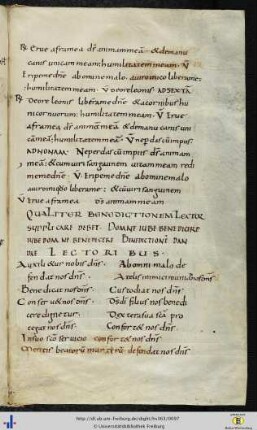 R Erue aframea ds animam meam & demanu
canis unicam meam: humilitatem meam. V
Eripe me dne ab homine malo. auiro iniquo libera me:
humilitatem meam. V De ore leonis ADSEXTA
R De ore leonis libera me dne & acornibus hu
nicornuorum: humilitatem meam. V Erue
aframea ds animam meam & demanu canis uni
cam meam: humilitatem meam. V Ne perdas cum impiis
ADNONAM. Ne perdas cum impiis ds animam
meam: & cum uiris sanguinum uitam meam redi
me me dne. V Eripe me dne ab homine malo
auiro iniquo libera me: & cum uiris sanguinum
V Erue aframea ds animam meam
QUALITER BENEDICTIONEM LECTOR
SUPPLICARI DEBET. DOMNE IUBE BENEDICERE
IUBE DOMNE BENEDICERE BENEDICTIONES DAN
DAE LECTORIBUS
Ab omni malo de
fendat nos dns.
Benedicat nos dns. Custodiat nos dns.
Conseruet nos dns. Di filius nos benedi
cere dignetur. Dextera sua pro
tegat nos dns. Confortet nos dns.
In suo sco seruicio confortet nos dns
Meritis beatorum martyrum defendat nos dns
http://dl.ub.uni-freiburg.de/diglit/hs
© Universitätsbibliothek Freiburg